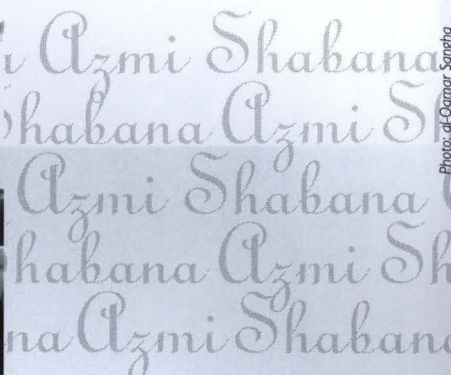 a Azmi Shabana
Shabana Azmi Sh
Azmi Shabana
habana Azmi Sh
na Azmi Shabana
Photo: al-Qamar Sangha